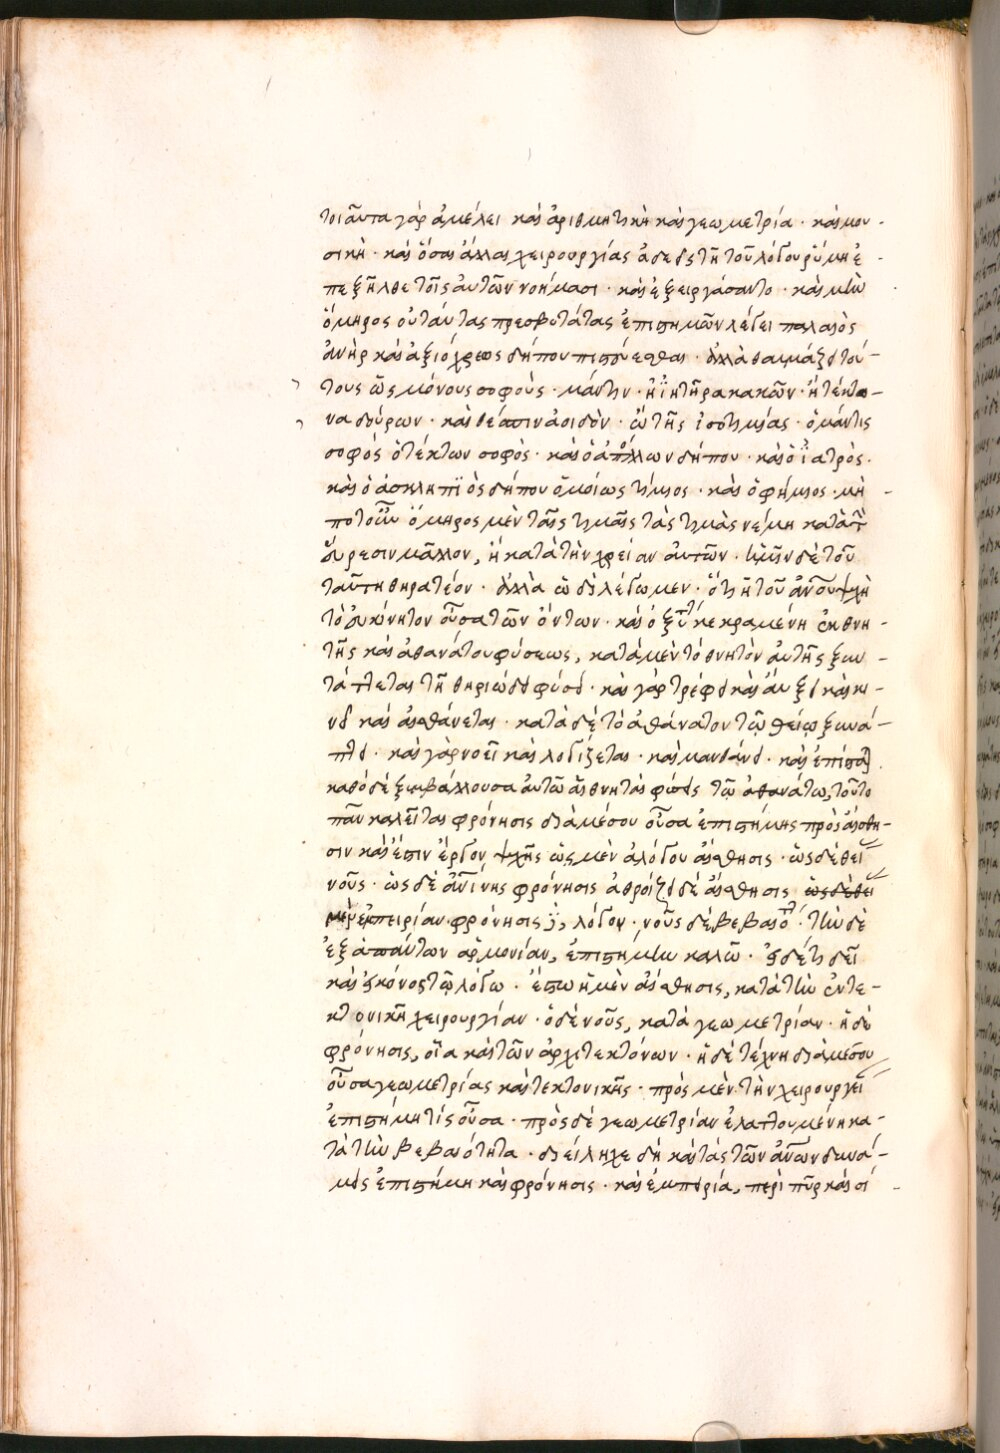 τοιαῦτα γὰρ ἀμέλει καὶ ἀριθμητικὴ καὶ γεωμετρία · καὶ μου -
σικὴ · καὶ ὅσαι ἄλλαι χειρουργίας ἄδεεῖς τῇ τοῦ λόγου ῥώμῃ ἐ -
πεξῆλθε τοῖς αὐτῶν νοήμασι · καὶ ἐξειργάσαντο · καὶ μὴν
ὅμηρος οὐ ταύτας πρεσβυτάτας ἐπιστημῶν λέγει παλαιὸς
ἀνὴρ καὶ ἀξιόχρεως δήπου πιστεύεσθαι · ἀλλὰ θαυμάζει τού -
τους ὡς μόνους σοφούς · μάντιν · ἢ ἰητῆρα κακῶν · ἢ τέκτο -
να δούρων · καὶ θέσπιν ἀοιδὸν · ὢ τῆς ἰσοτιμίας · ὁ μάντις
σοφὸς ὁ τέκτων σοφὸς · καὶ ὁ ἀπόλλων δήπου · καὶ ὁ ἰατρὸς ·
καὶ ὁ ἀσκληπιὸς δήπου ὁμοίως τίμιος · καὶ ὁ φήμιος · μὴ -
ποτ' οὖν ὅμηρος μὲν ταῖς τιμαῖς τὰς τιμὰς νέμῃ κατὰ τὴν
εὕρεσιν μᾶλλον, ἢ κατὰ τὴν χρείαν αὐτῶν · ἡμῖν δὲ τοῦ
ταύτῃ θηρατέον · ἀλλὰ ὧδε λέγωμεν · ὅτι ἡ τοῦ ἀνου ψυχὴ
τὸ εὐκίνητον οὖσα τῶν ὄντων · καὶ ὀξύτατον κεκραμένη ἐκ θνη -
τῆς καὶ ἀθανάτου φύσεως, κατὰ μὲν τὸ θνητὸν αὐτῆς ξυν -
τάττεται τῇ θηριώδει φύσει · καὶ γὰρ τρέφει καὶ αὔξει καὶ κι -
νεῖ καὶ αἰσθάνεται · κατὰ δὲ τὸ ἀθάνατον τῷ θείῳ ξυνά -
πτει · καὶ γὰρ νοεῖ καὶ λογίζεται · καὶ μανθάνει · καὶ ἐπίσταται
καθὸ δὲ ξυμβάλλουσα αὐτῶ αἱ θνηταὶ φύσεις τῶ ἀθανάτω, τοῦτο
πᾶν καλεῖται φρόνησις διὰ μέσου οὖσα ἐπιστήμης πρὸς αἴσθη -
σιν καὶ ἔστιν ἔργον ψυχῆς ὡς μὲν ἀλόγου αἴσθησις · ὡς δὲ θεί
νοῦς · ὡς δὲ ἀνίνης φρόνησις ἀθροίζει δὲ αἴσθησις ὡς δὲ θεί
μὲν ἐμπειρίαν · φρόνησις , λόγον · νοῦς δὲ βεβαιότητα · τὴν δὲ
ἐξ ἁπάντων ἁρμονίαν, ἐπιστήμην καλῶ · εἰ δέ τι δεῖ
καὶ εἰκόνος τῷ λόγω · ἔστω ἡ μὲν αἴσθησις, κατὰ τὴν ἐν τε -
κτονικῇ χειρουργίαν · ὁ δὲ νοῦς, κατὰ γεωμετρίαν · ἡ δὲ
φρόνησις, οἷα καὶ τῶν ἀρχιτεκτόνων · ἡ δὲ τέχνη διὰ μέσου
οὖσα γεωμετρίας καὶ τεκτονικῆς · πρὸς μὲν τὴν χειρουργεί
ἐπιστήμη τὶς οὖσα · πρὸς δὲ γεωμετρίαν ἐλαττουμένη κα -
τὰ τὴν βεβαιότητα · διείληχε δὴ καὶ τὰς τῶν ἀνων δυνά -
μεις ἐπιστήμη καὶ φρόνησις · καὶ ἐμπειρία, περὶ πῦρ καὶ σί -